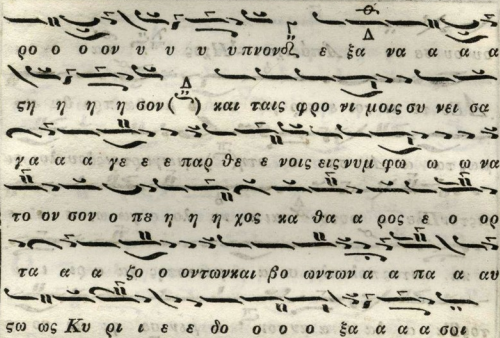 ρο ο ο ον υ υ υ υπνον ε ξα να α α α
ςη η η η σον ( ) και ταις φρο νι μοις συ νει σα
γα α α γε ε ε παρ θε ε νοις εις νυμ φω ω ω να
το ον σον ο πε η η η χος κα θα α ρος ε ο ορ
τα α α ζο ο οντωνκαι βο ωντων α α πα α αυ
ςω ως Κυ ρι ι ε ε δο ο ο ο ξα α α α σοι